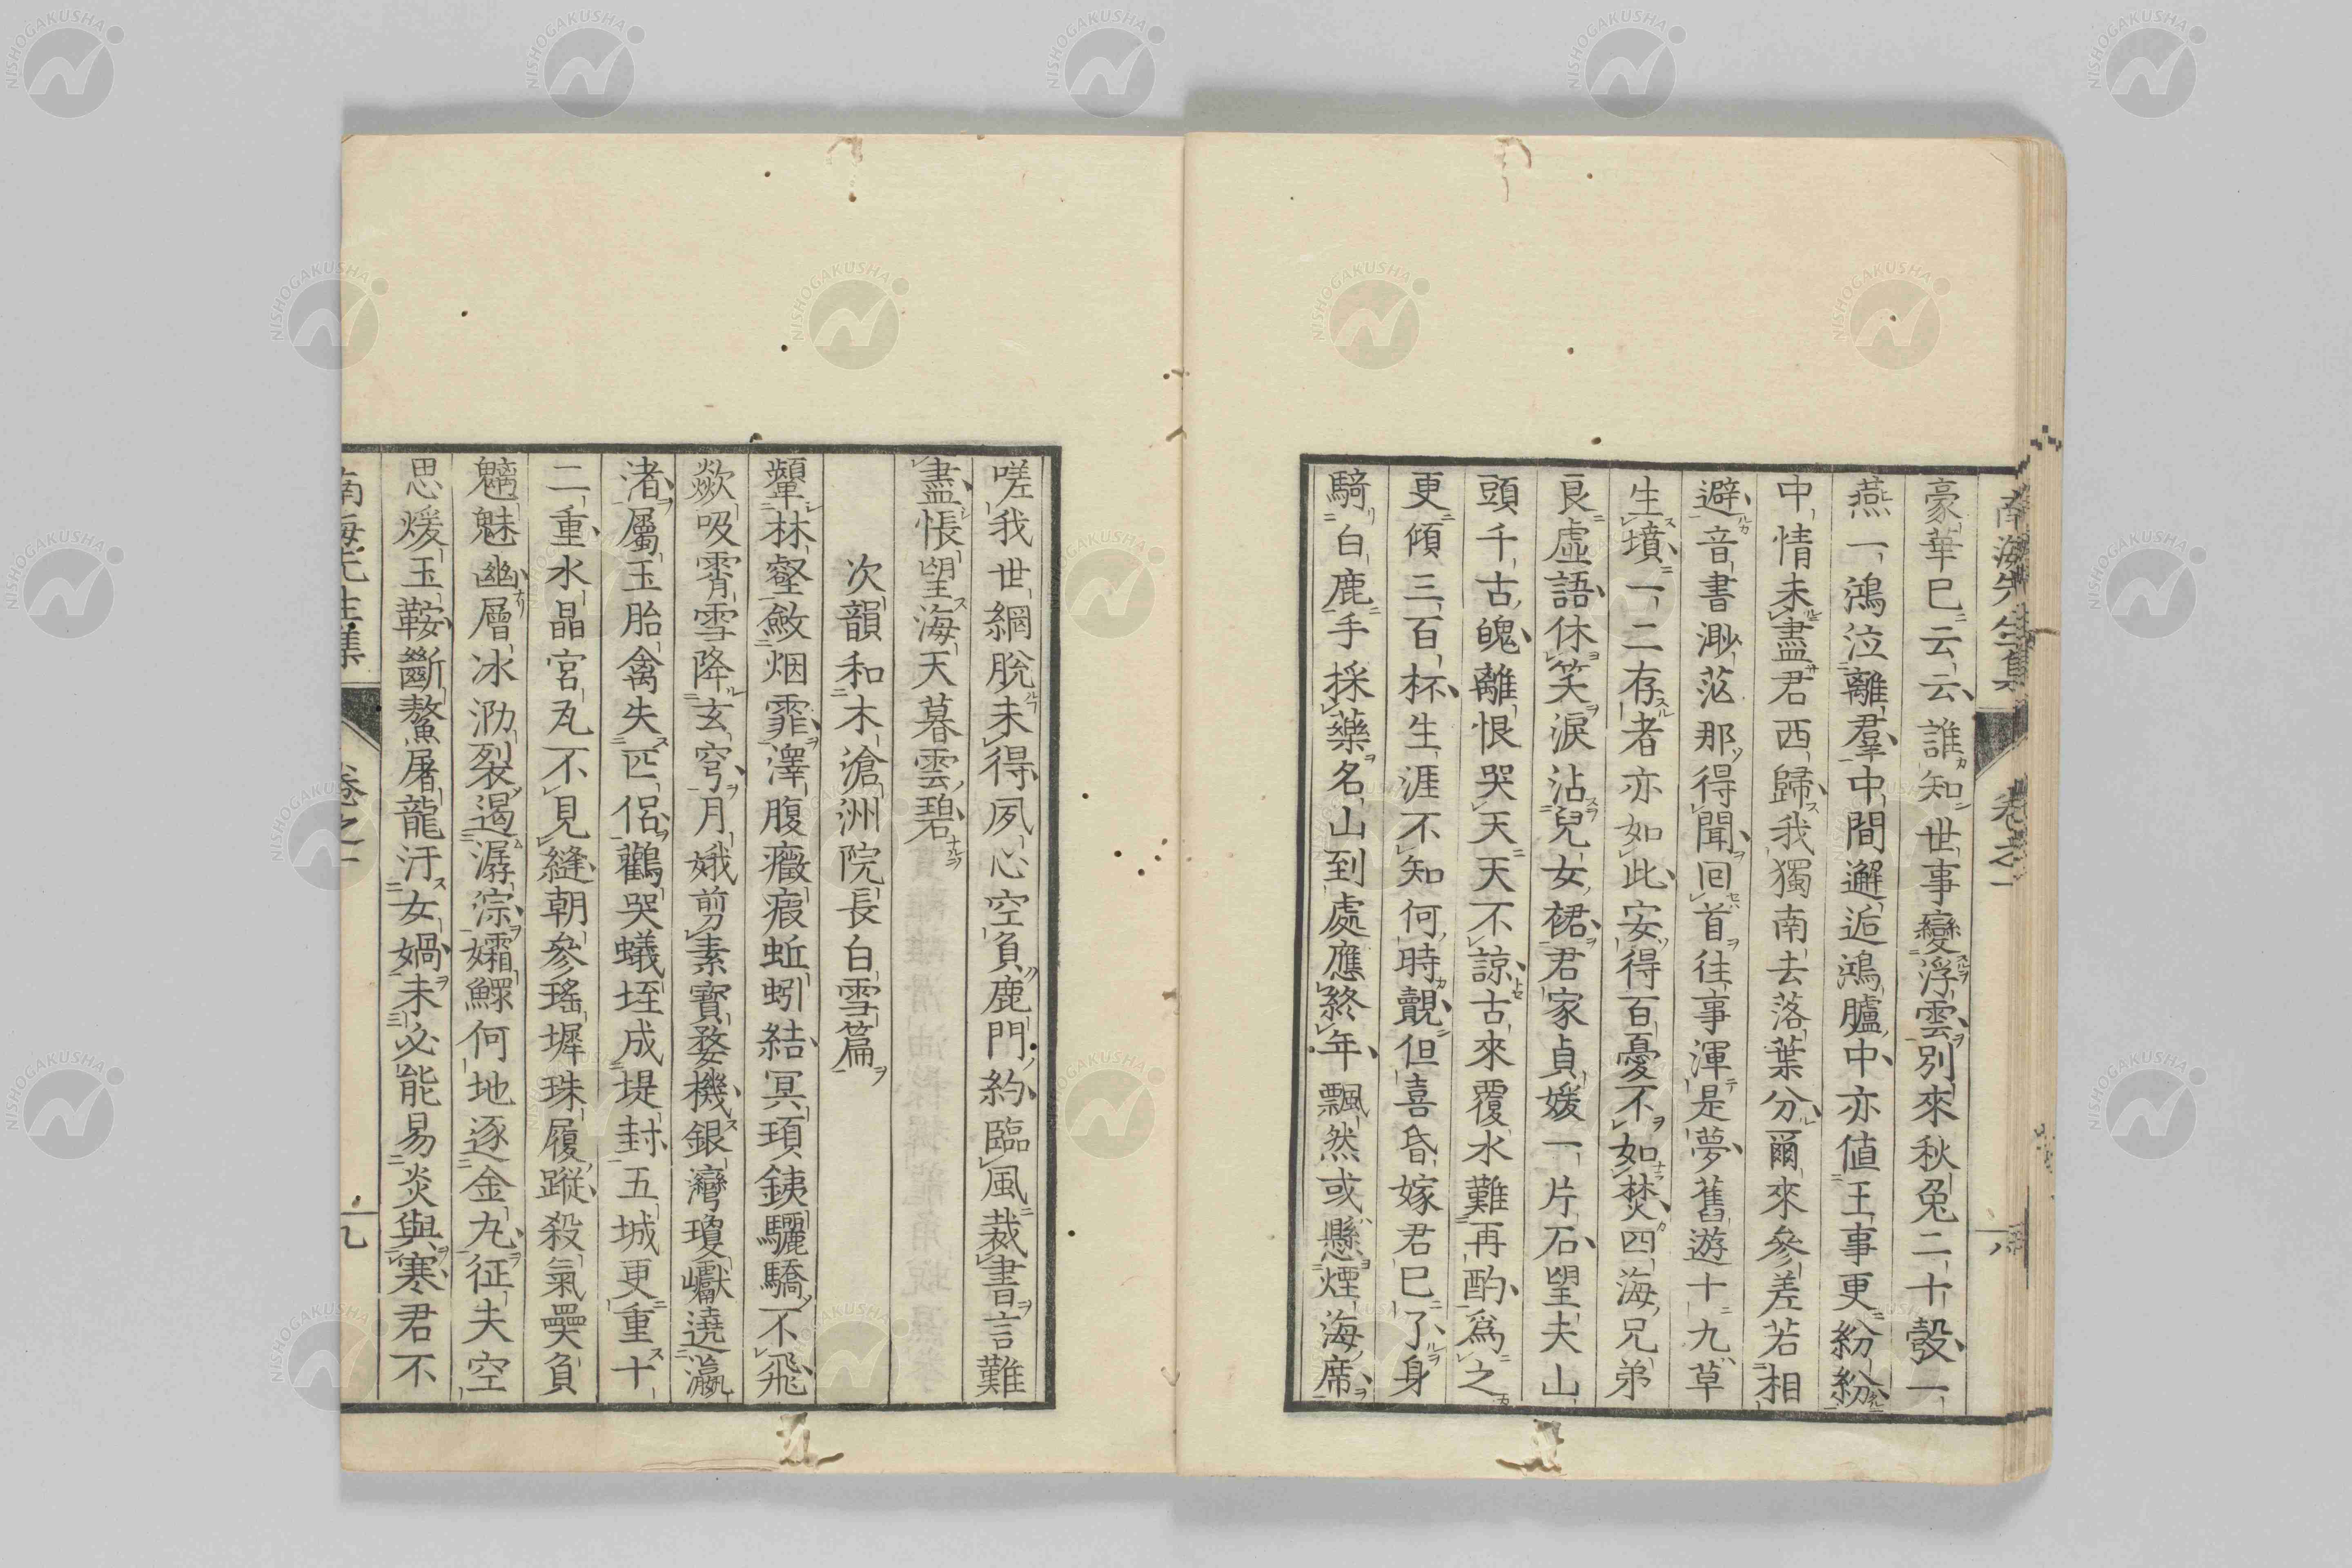 南海先生集 卷之一 八
豪華已云云誰知世事變浮雲別來秋兔二十彀一
燕一鴻泣離羣中間邂逅鴻臚中亦值王事更紛紛
中情未盡君西歸我獨南去落葉分爾來參差若相
避音書渺茫那得聞回首往事渾是夢舊遊十九草
生墳一二存者亦如此安得百憂不如焚四海兄弟
良虛語休笑淚沾兒女裙君家貞媛一片石望夫山
頭千古魄離恨哭天天不諒古來覆水難再酌爲之
更傾三百杯生涯不知何時覿但喜昏嫁君已了身
騎白鹿手採藥名山到處應終年飄然或懸煙海席
嗟我世網脫未得夙心空負鹿門約臨風裁書言難
盡悵望海天暮雲碧
次韻和木滄洲院長白雪篇
顰林壑斂烟霏澤腹癥瘕蚯蚓結冥頊銕驪驕不飛
歘吸霄雪降玄穹月娥剪素寶婺機銀灣瓊巘遶瀛
渚屬玉胎禽失匹侶鸛哭蟻垤成堤封五城更重十
二重水晶宮瓦不見縫朝參瑤墀珠履蹤殺氣㸑負
魑魅幽層冰泐裂遏潺淙孀鰥何地逐金丸征夫空
思煖玉鞍斷鰲屠龍汙女媧未必能易炎與寒君不
南海先生集 卷之一 九
NISHOGAKUSHA